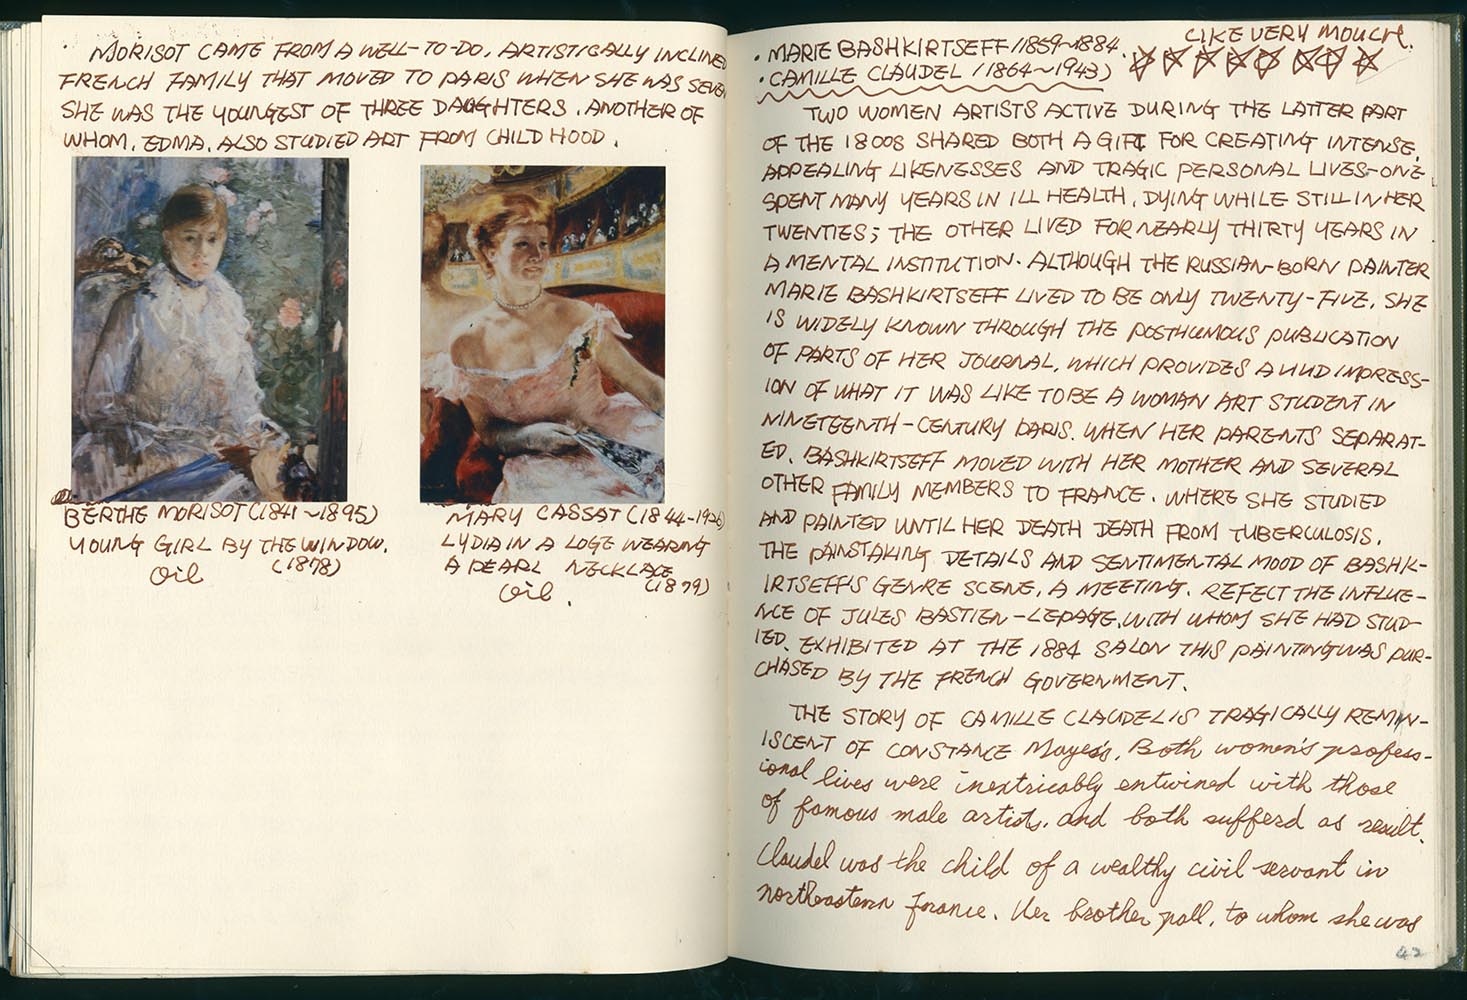 · MORISOT CAME FROM A WELL-TO-DO, ARTISTICALLY INCLINED
FRENCH FAMILY THAT MOVED TO PARIS WHEN SHE WAS SEVEN
SHE WAS THE YOUNGEST OF THREE DAUGHTERS. ANOTHER OF
WHOM, EDMA, ALSO STUDIED ART FROM CHILD HOOD.
BERTHE MORISOT (1841~1895)
YOUNG GIRL BY THE WINDOW.
(1878)
Oil
MARY CASSAT (1844-1926)
LYDIA IN A LOGE WEARING
A PEARL NECKLACE
(1879)
Oil.
LIKE VERY MOUCH.
· MARIE BASHKIRTSEFF (1859~1884
· CAMILLE CLAUDEL (1864~1943)
TWO WOMEN ARTISTS ACTIVE DURING THE LATTER PART
OF THE 1800S SHARED BOTH A GIFT FOR CREATING INTENSE,
APPEALING LIKENESSES AND TRAGIC PERSONAL LIVES-ONE
SPENT MANY YEARS IN ILL HEALTH, DYING WHILE STILL IN HER
TWENTIES; THE OTHER LIVED FOR NEARLY THIRTY YEARS IN
A MENTAL INSTITUTION. ALTHOUGH THE RUSSIAN-BORN PAINTER
MARIE BASHKIRTSEFF LIVED TO BE ONLY TWENTY-FIVE, SHE
IS WIDELY KNOWN THROUGH THE POSTHUMOUS PUBLICATION
OF PARTS OF HER JOURNAL, WHICH PROVIDES A VIVID IMPRESS-
ION OF WHAT IT WAS LIKE TO BE A WOMAN ART STUDENT IN
NINETEENTH-CENTURY PARIS. WHEN HER PARENTS SEPARAT-
ED, BASHKIRTSEFF MOVED WITH HER MOTHER AND SEVERAL
OTHER FAMILY MEMBERS TO FRANCE. WHERE SHE STUDIED
AND PAINTED UNTIL HER DEATH DEATH FROM TUBERCULOSIS.
THE PAINSTAKING DETAILS AND SENTIMENTAL MOOD OF BASHK-
IRTSEFF'S GENRE SCENE, A MEETING, REFECT THE INFLUE-
NCE OF JULES BASTIEN-LEPAGE, WITH WHOM SHE HAD STUD-
IED. EXHIBITED AT THE 1884 SALON THIS PAINTING WAS PUR-
CHASED BY THE FRENCH GOVERNMENT.
THE STORY OF CAMILLE CLAUDEL IS TRAGICALLY REMIN-
ISCENT OF CONSTANCE Mayer's. Both women's profess-
ional lives were inextricably entwined with those
of famous male artists, and both sufferd as result.
Claudel was the child of a wealthy civil servant in
northeastern france. Her brother pall, to whom she was
42